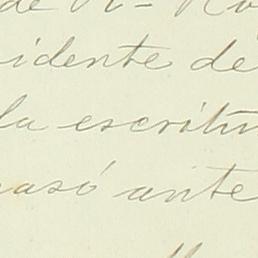 de
idente de
la escritu
asó ante